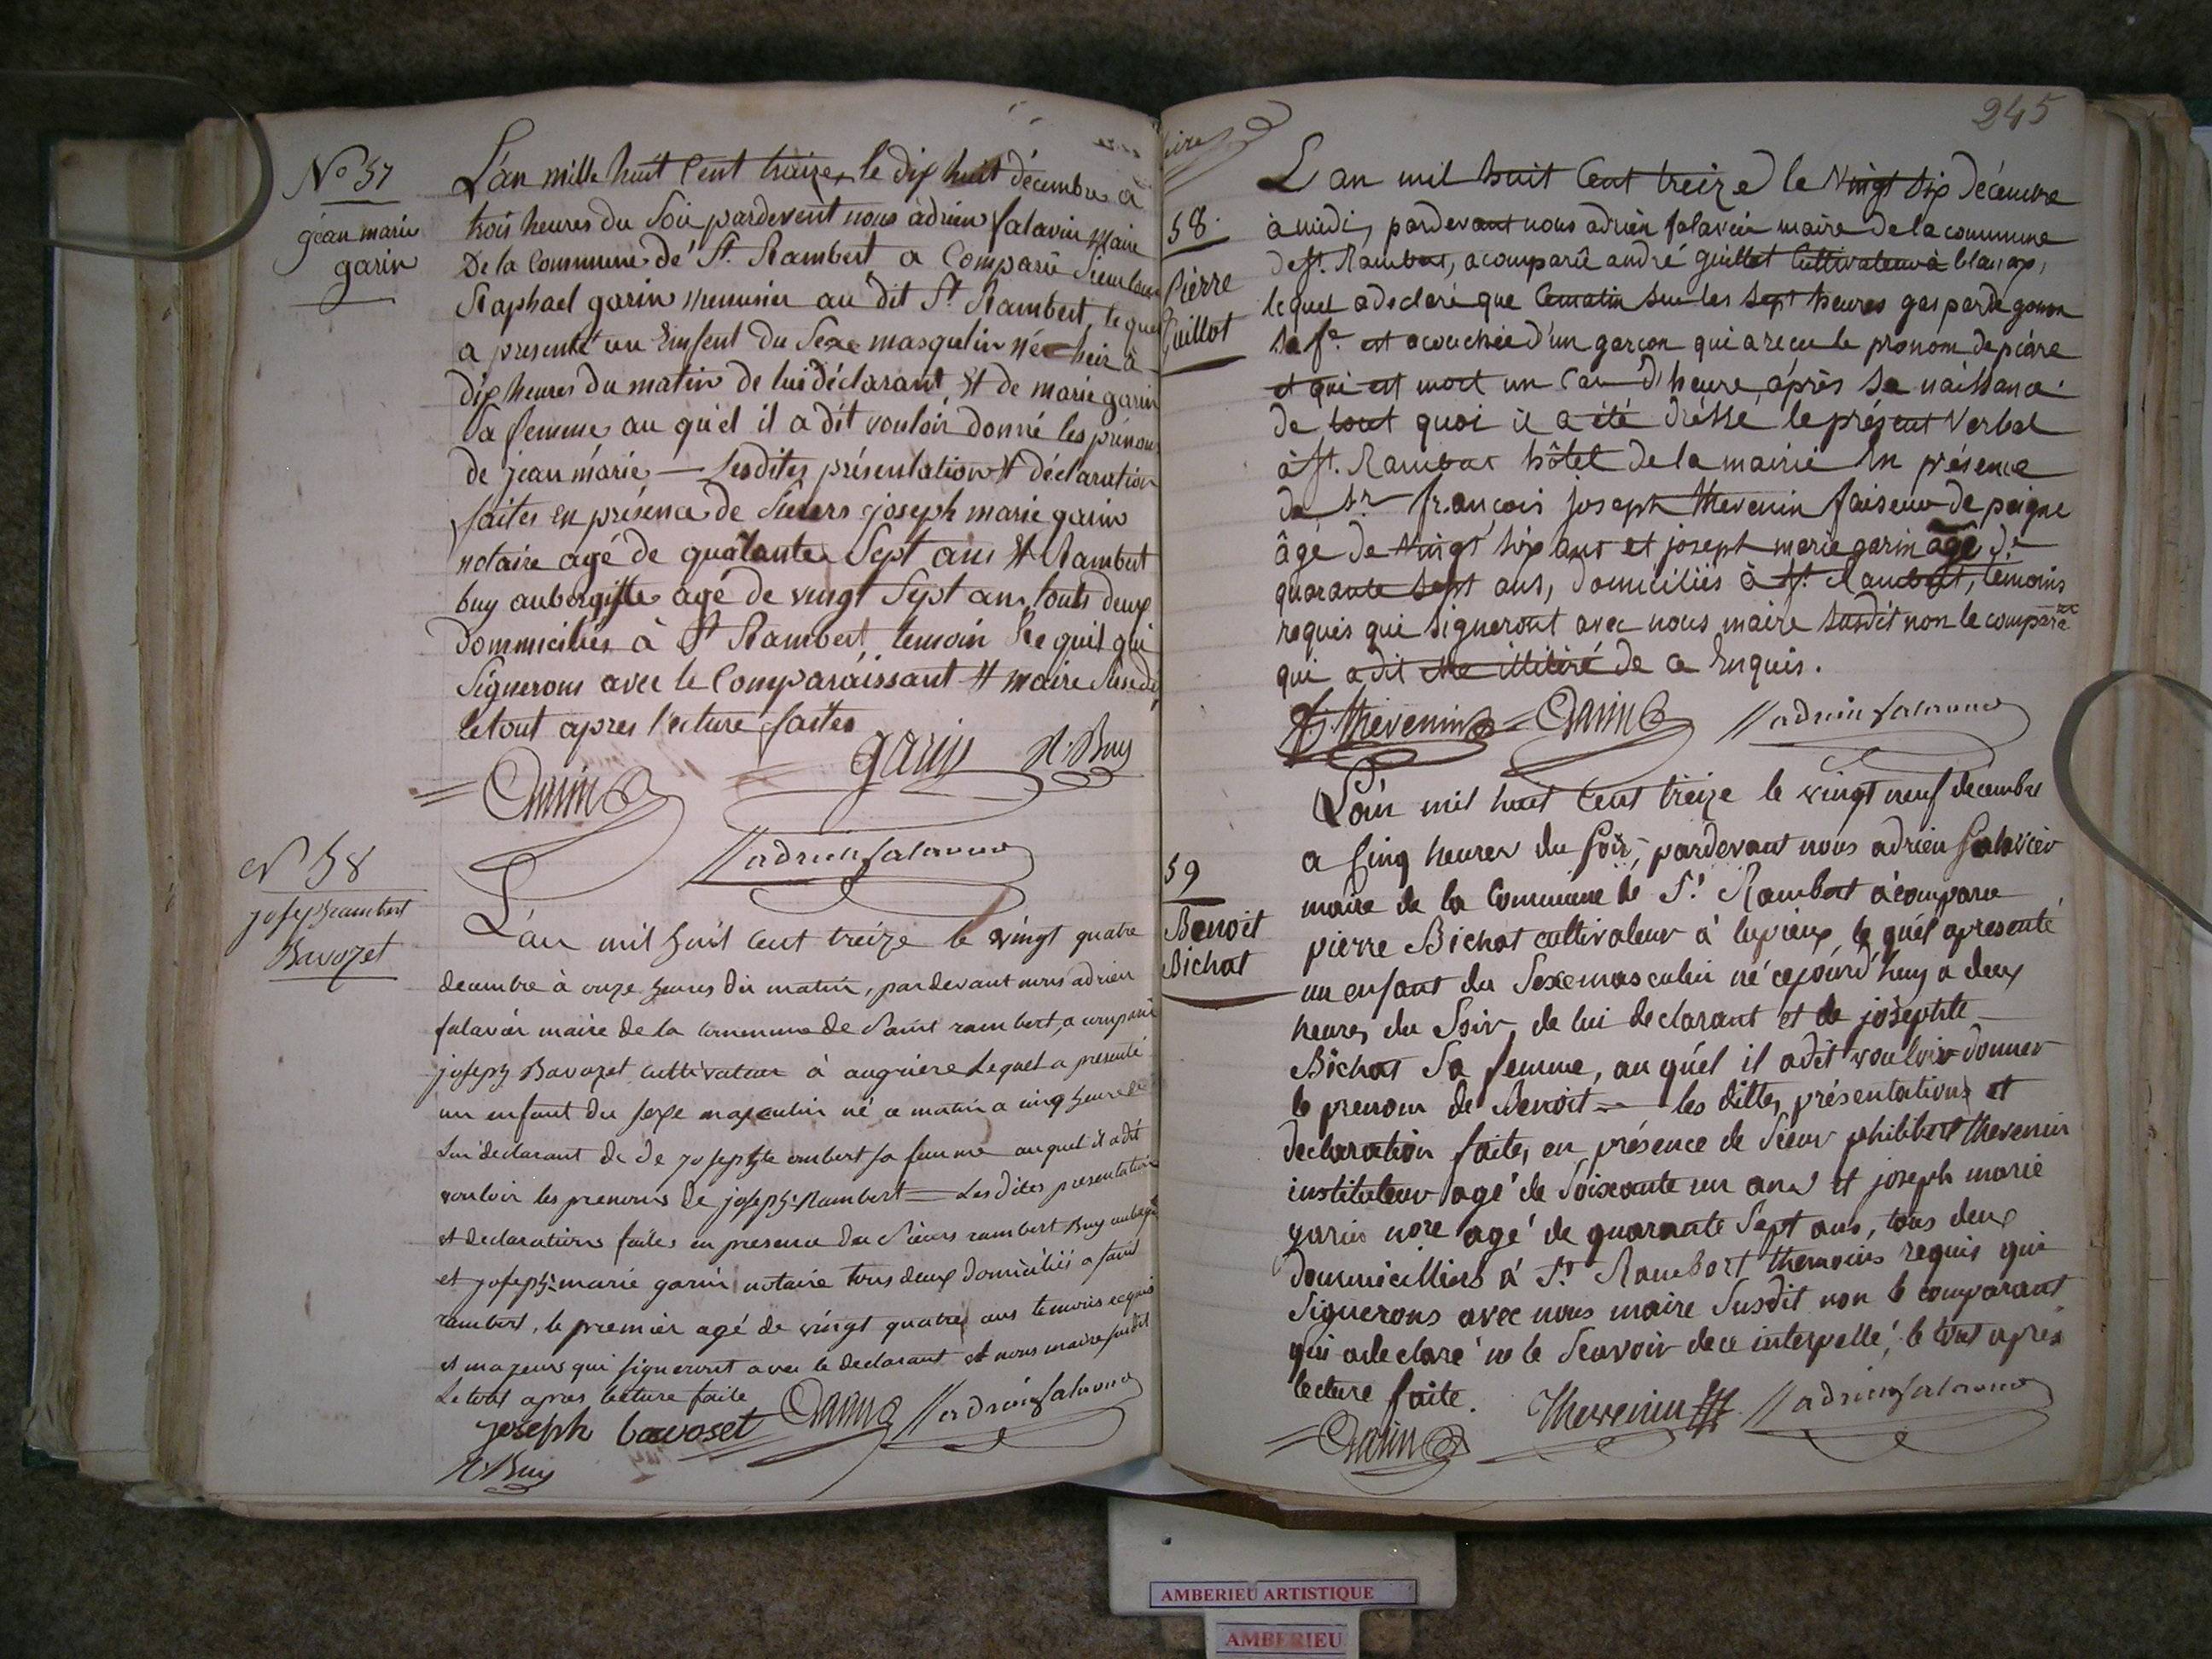 N° 57
jéan marie
garin
L'an mille huit Cent traize, le dix huit décembre à
trois heures du Soir pardevent nous adrien falavin Maire
De la Commune dé St. Rambert a Comparû Sieur
Raphael garin menusier au dit St Rambert, lequel
a presenté un Einfent du Sexe masqulin né heir à
dix heures du matin de lui déclarant, Et de marie garin
Sa femme au quel il a dit vouloir donné les prénoms
de jean marie — Lesdites présentation Et déclaration
faites en présence de Sieurs joseph marie garin
notaire agé de quarante Sept ans Et Rambert
buy aubergiste agé de vingt Sept ans, touts deux
dommiciliés à St Rambert temoin Requit qui
Signerons avec le Comparaissant Et maire Susdit
le tout apres l'ecture faites
garin R. Buy
Garin
adrien falavin
N° 58
joseph rambert
Bavozet
L'an mil huit cent treize le vingt quatre
decembre à onze heures du matin, pardevant nous adrien
falavin maire de la commune de Saint rambert, a comparu
joseph Bavozet cultivateur à angrière Lequel a presenté
un enfant du sexe masculin né ce matin a cinq heures de
lui declarant de de josephte ombert sa femme auquel il a dit
vouloir les prenoms de joseph-Rambert = Lesdites presentation
et declarations faites en presence des Sieurs rambert Buy
et joseph-marie garin notaire tous deux domiciliés a saint
rambert, le premier agé de vingt quatre ans temoins requis
et majeurs qui signeront avec le declarant et nous maire susdit
Le tout apres lecture faite
joseph bavoset Garin adrien falavin
R. Buy
245
58.
Pierre
Guillot
L an mil huit Cent treize le Vingt six décembre
à midi, pardevant nous adrien falavin maire de la commune
de st. Rambert, a comparû andré guillot Cultivateur à blanaz,
lequel a déclaré que Cematin sur les sept heures gasparde gonon
sa fe. est acouchée d'un garçon qui a recu le pronom de pierre
et qui est mort un cart d'heure après sa naissance.
de tout quoi il a été dréssé le présent Verbal
à st. Rambert hôtel de la mairie En présence
de sr françois joseph thevenin faiseur de peigne
âgé de vingt six ans et joseph marie garin âgé de
quarante sept ans, domiciliés à st. Rambert, témoins
requis qui signeront avec nous maire susdit non le comparant
qui a dit être illitiré de ce Enquis.
fs. thevenin Garin adrien falavin
59
Benoit
Bichat
L'an mil huit Cent treize le vingt neuf decembre
a cinq heures du soir, pardevant nous adrien falavier
maire de la Commune de St Rambert a comparu
pierre Bichat cultivateur à lupieux, le quél a presenté
un enfant du Sexe masculin né cejourd'huy a deux
heures du Soir de lui declarant et de joséphte
Bichat Sa femme, au quél il a dit vouloir donner
le prenom de Benoit = les dittes présentations et
declaration faites en présence de Sieur philibert thevenin
instituteur agé de Soixante un ans et joseph marie
garin nore agé de quarante Sept ans, tous deux
dommicilliés à St. Rambert themoins requis qui
Signerons avec nous maire Susdit non le comparant
qui a declaré ne le Scavoir de ce interpellé, le tout après
lecture faite.
Garin Thevenin adrien falavin
AMBERIEU ARTISTIQUE
AMBERIEU